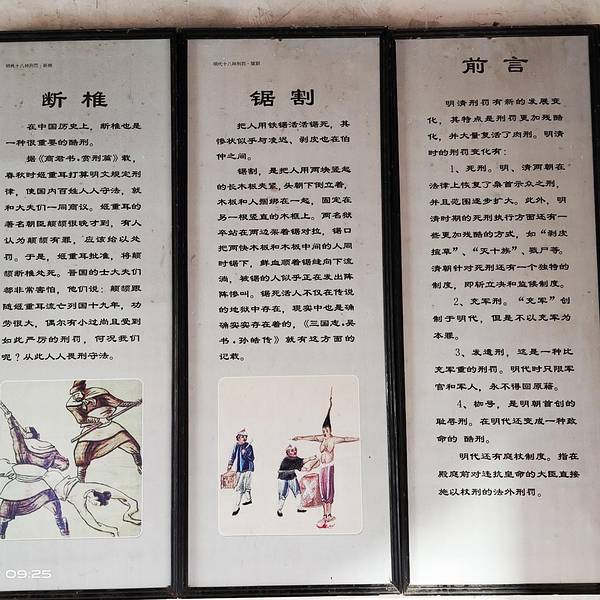 明代十八种刑罚·断椎
断 椎
在中国历史上，断椎也是
一种很重要的酷刑。
据《商君书·赏刑篇》载，
春秋时姬重耳打算明文规定刑
律，使国内百姓人人守法，就
和大夫们一同商议。姬重耳的
著名期臣颠颉很晚才到，有人
认为颠颉有罪，应该给以处
罚。于是，姬重耳批准，将颠
颉断椎处死。晋国的士大夫们
都非常害怕，他们说：颠颉跟
随姬重耳流亡列国十九年，功
劳很大，偶尔有小过尚且受到
如此严厉的刑罚，何况我们
呢？从此人人畏刑守法。
明代十八种刑罚·锯割
锯 割
把人用铁锯活活锯死，其
惨状似乎与凌迟、剥皮也在伯
仲之间。
锯割，是把人用两块竖起
的长木板夹紧，头朝下倒立着，
木板和人捆绑在一起，固定在
另一根竖直的木框上。两名狱
卒站在两边架着锯对拉，锯口
把两快木板和木板中间的人同
时锯下，鲜血顺着锯缝向下流
淌，被锯的人似乎正在发出阵
阵惨叫。锯死活人不仅在传说
的地狱中存在，现实中也是确
确实实存在着的，《三国志·吴
书·孙皓传》就有这方面的
记载。
前 言
明清刑罚有新的发展变
化，其特点是刑罚更加残酷
化，并大量复活了肉刑。明清
时的刑罚变化有：
1、死刑。明、清两朝在
法律上恢复了枭首示众之刑，
并且范围逐步扩大。此外，明
清时期的死刑执行方面还有一
些更加残酷的方式，如“剥皮
揎草”、“灭十族”、戮尸等。
清朝针对死刑还有一个独特的
制度，即斩立决和监候制度。
2、充军刑。“充军”创
制于明代，但是不以充军为
本罪。
3、发遣刑，这是一种比
充军重的刑罚。明代时只限军
官和军人，永不得回原籍。
4、枷号，是明朝首创的
耻辱刑。在明代还变成一种致
命的 酷刑。
明代还有庭杖制度。指在
殿庭前对违抗皇命的大臣直接
施以杖刑的法外刑罚。
09:25